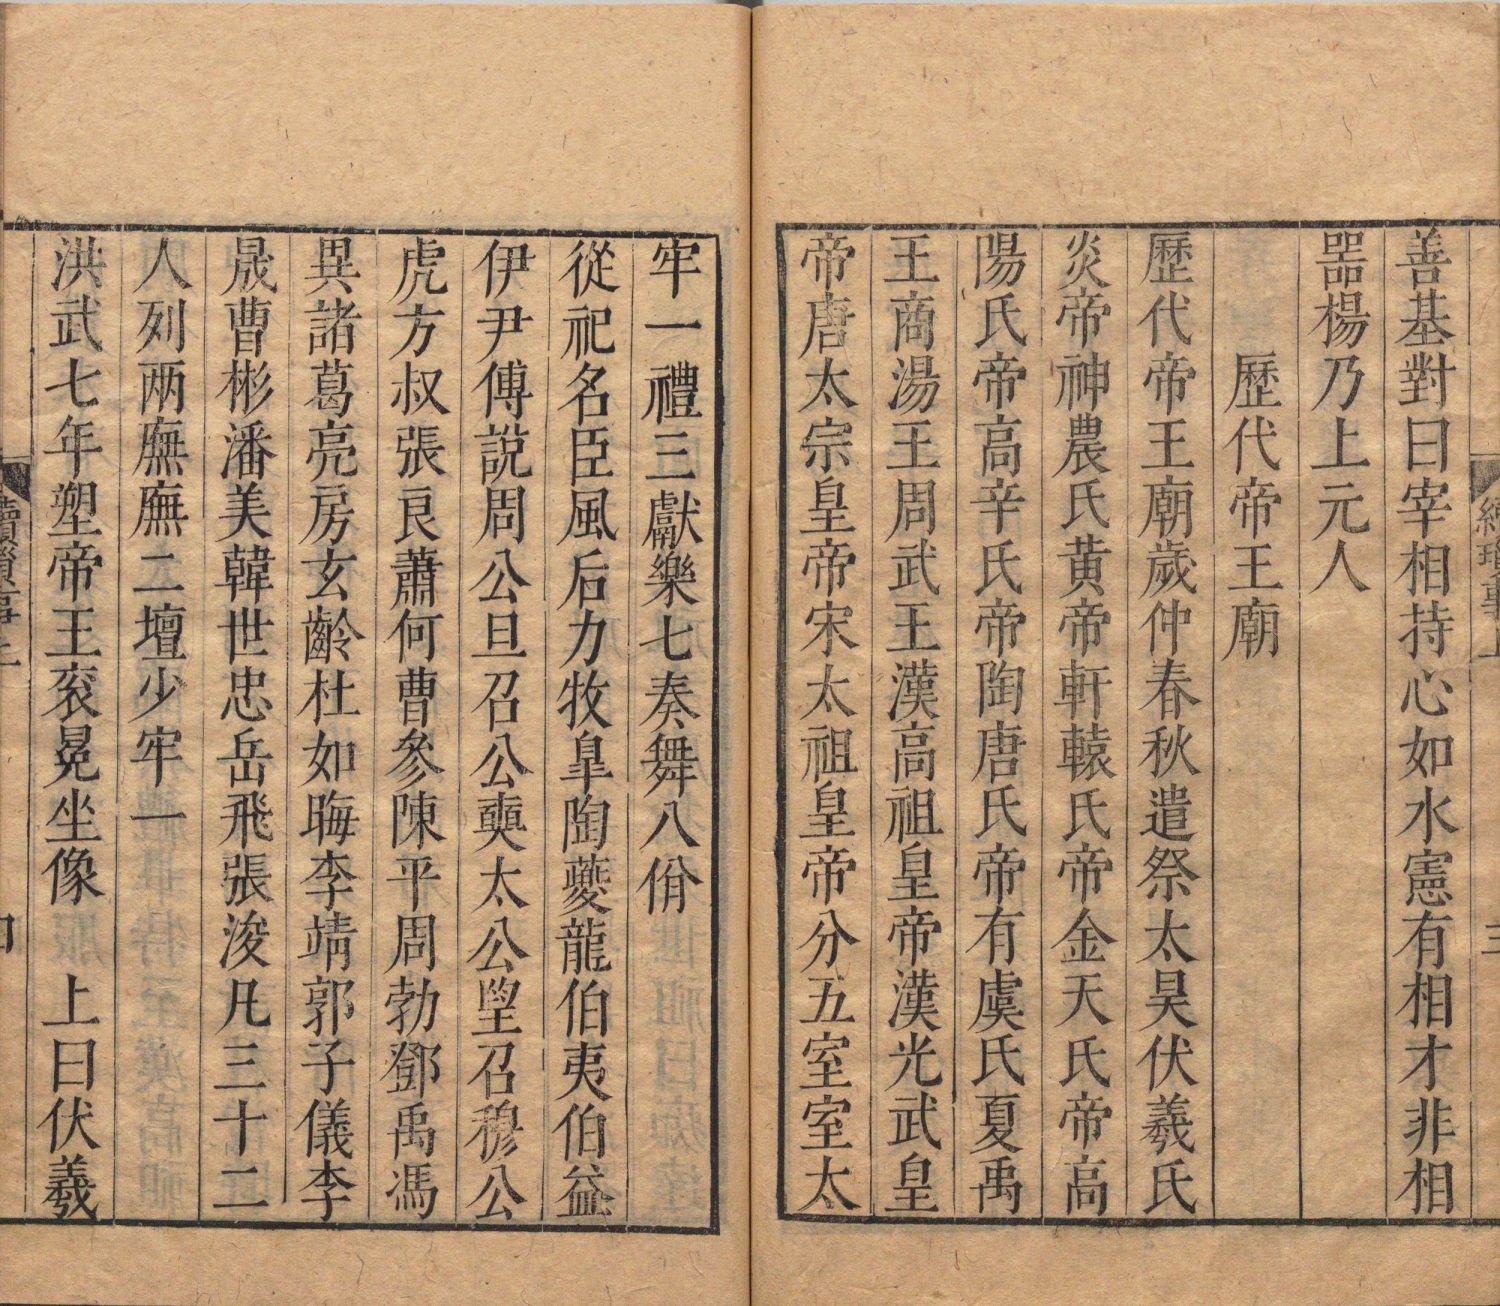 善基對曰宰相持心如水憲有相才非相
噐楊乃上元人
歷代帝王廟
歷代帝王廟歲仲春秋遣祭太昊伏羲氏
炎帝神農氏黄帝軒轅氏帝金天氏帝高
陽氏帝高辛氏帝陶唐氏帝有虞氏夏禹
王商湯王周武王漢高祖皇帝漢光武皇
帝唐太宗皇帝宋太祖皇帝分五室室太
牢一禮三獻樂七奏舞八佾
從祀名臣風后力牧臯陶夔龍伯夷伯益
伊尹傅說周公旦召公奭太公望召穆公
虎方叔張良蕭何曹參陳平周勃鄧禹馮
異諸葛亮房玄齡杜如晦李靖郭子儀李
晟曹彬潘美韓世忠岳飛張浚凡三十二
人列兩廡廡二壇少牢一
洪武七年塑帝王衮冕坐像　上曰伏羲